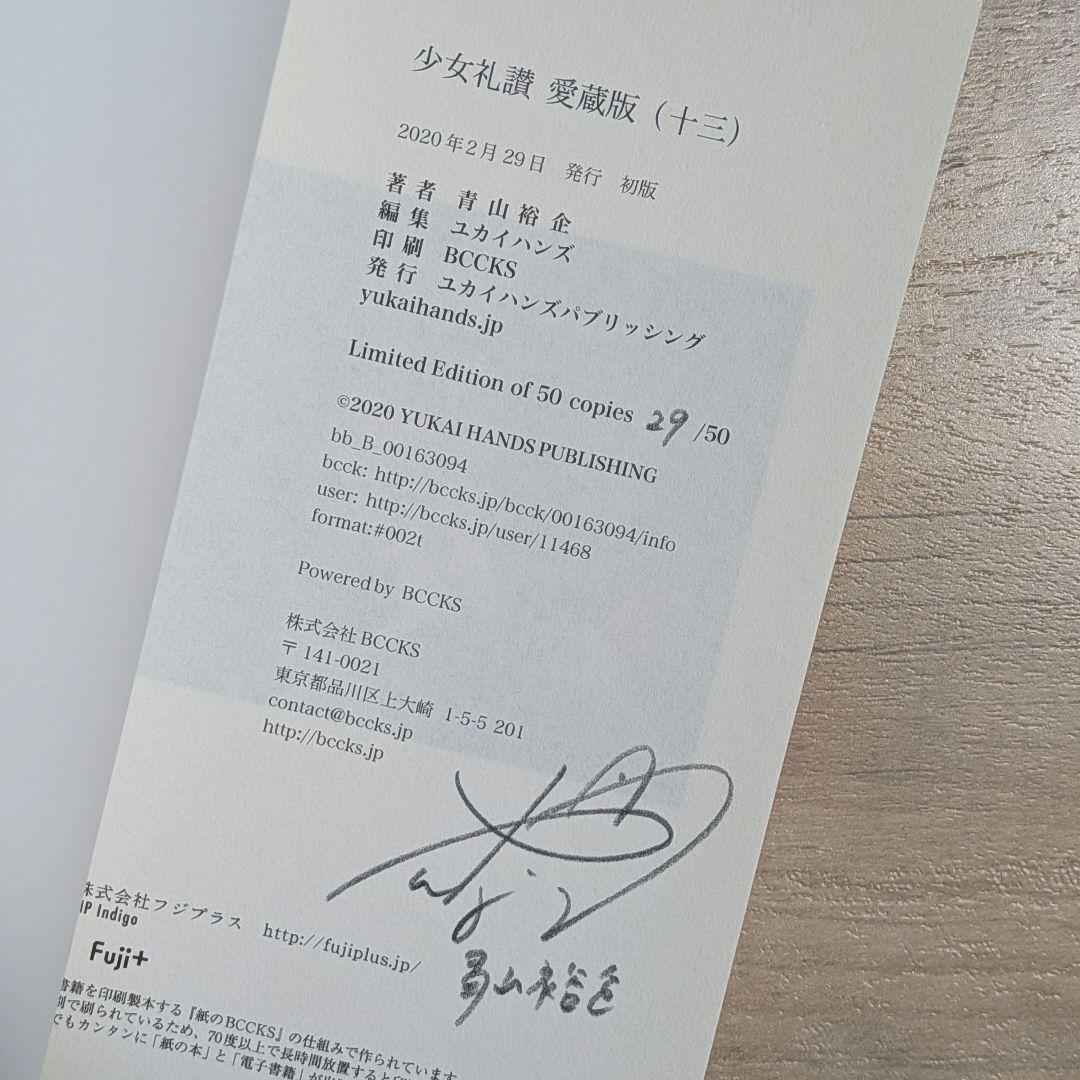 少女礼讃 愛蔵版（十三）
2020年2月29日　発行　初版
著者　青山裕企
編集　ユカイハンズ
印刷　BCCKS
発行　ユカイハンズパブリッシング
yukaihands.jp
Limited Edition of 50 copies 29 /50
©2020 YUKAI HANDS PUBLISHING
bb_B_00163094
bcck: http://bccks.jp/bcck/00163094/info
user: http://bccks.jp/user/11468
format:#002t
Powered by BCCKS
株式会社BCCKS
〒141-0021
東京都品川区上大崎 1-5-5 201
contact@bccks.jp
http://bccks.jp
株式会社フジプラス　http://fujiplus.jp/
HP Indigo
Fuji+
青山裕企
書籍を印刷製本する『紙のBCCKS』の仕組みで作られています
刷で刷られているため、70度以上で長時間放置すると印
でもカンタンに「紙の本」と「電子書籍」が